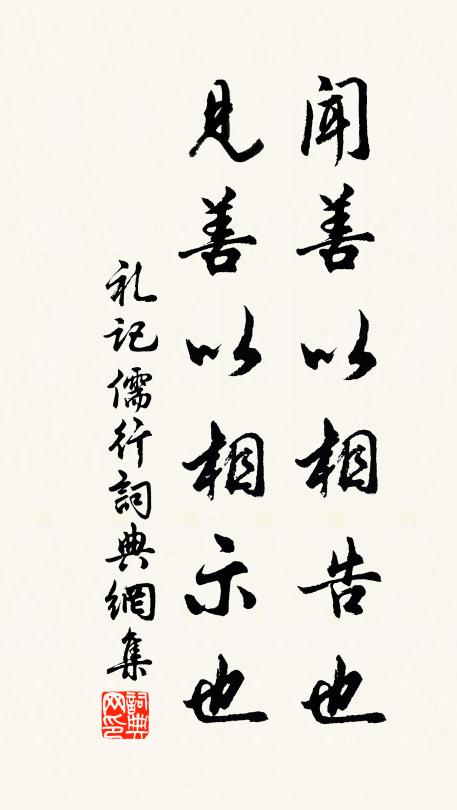 闻善以相告也
見善以相示也
礼记儒行詞典網集
詞典网印